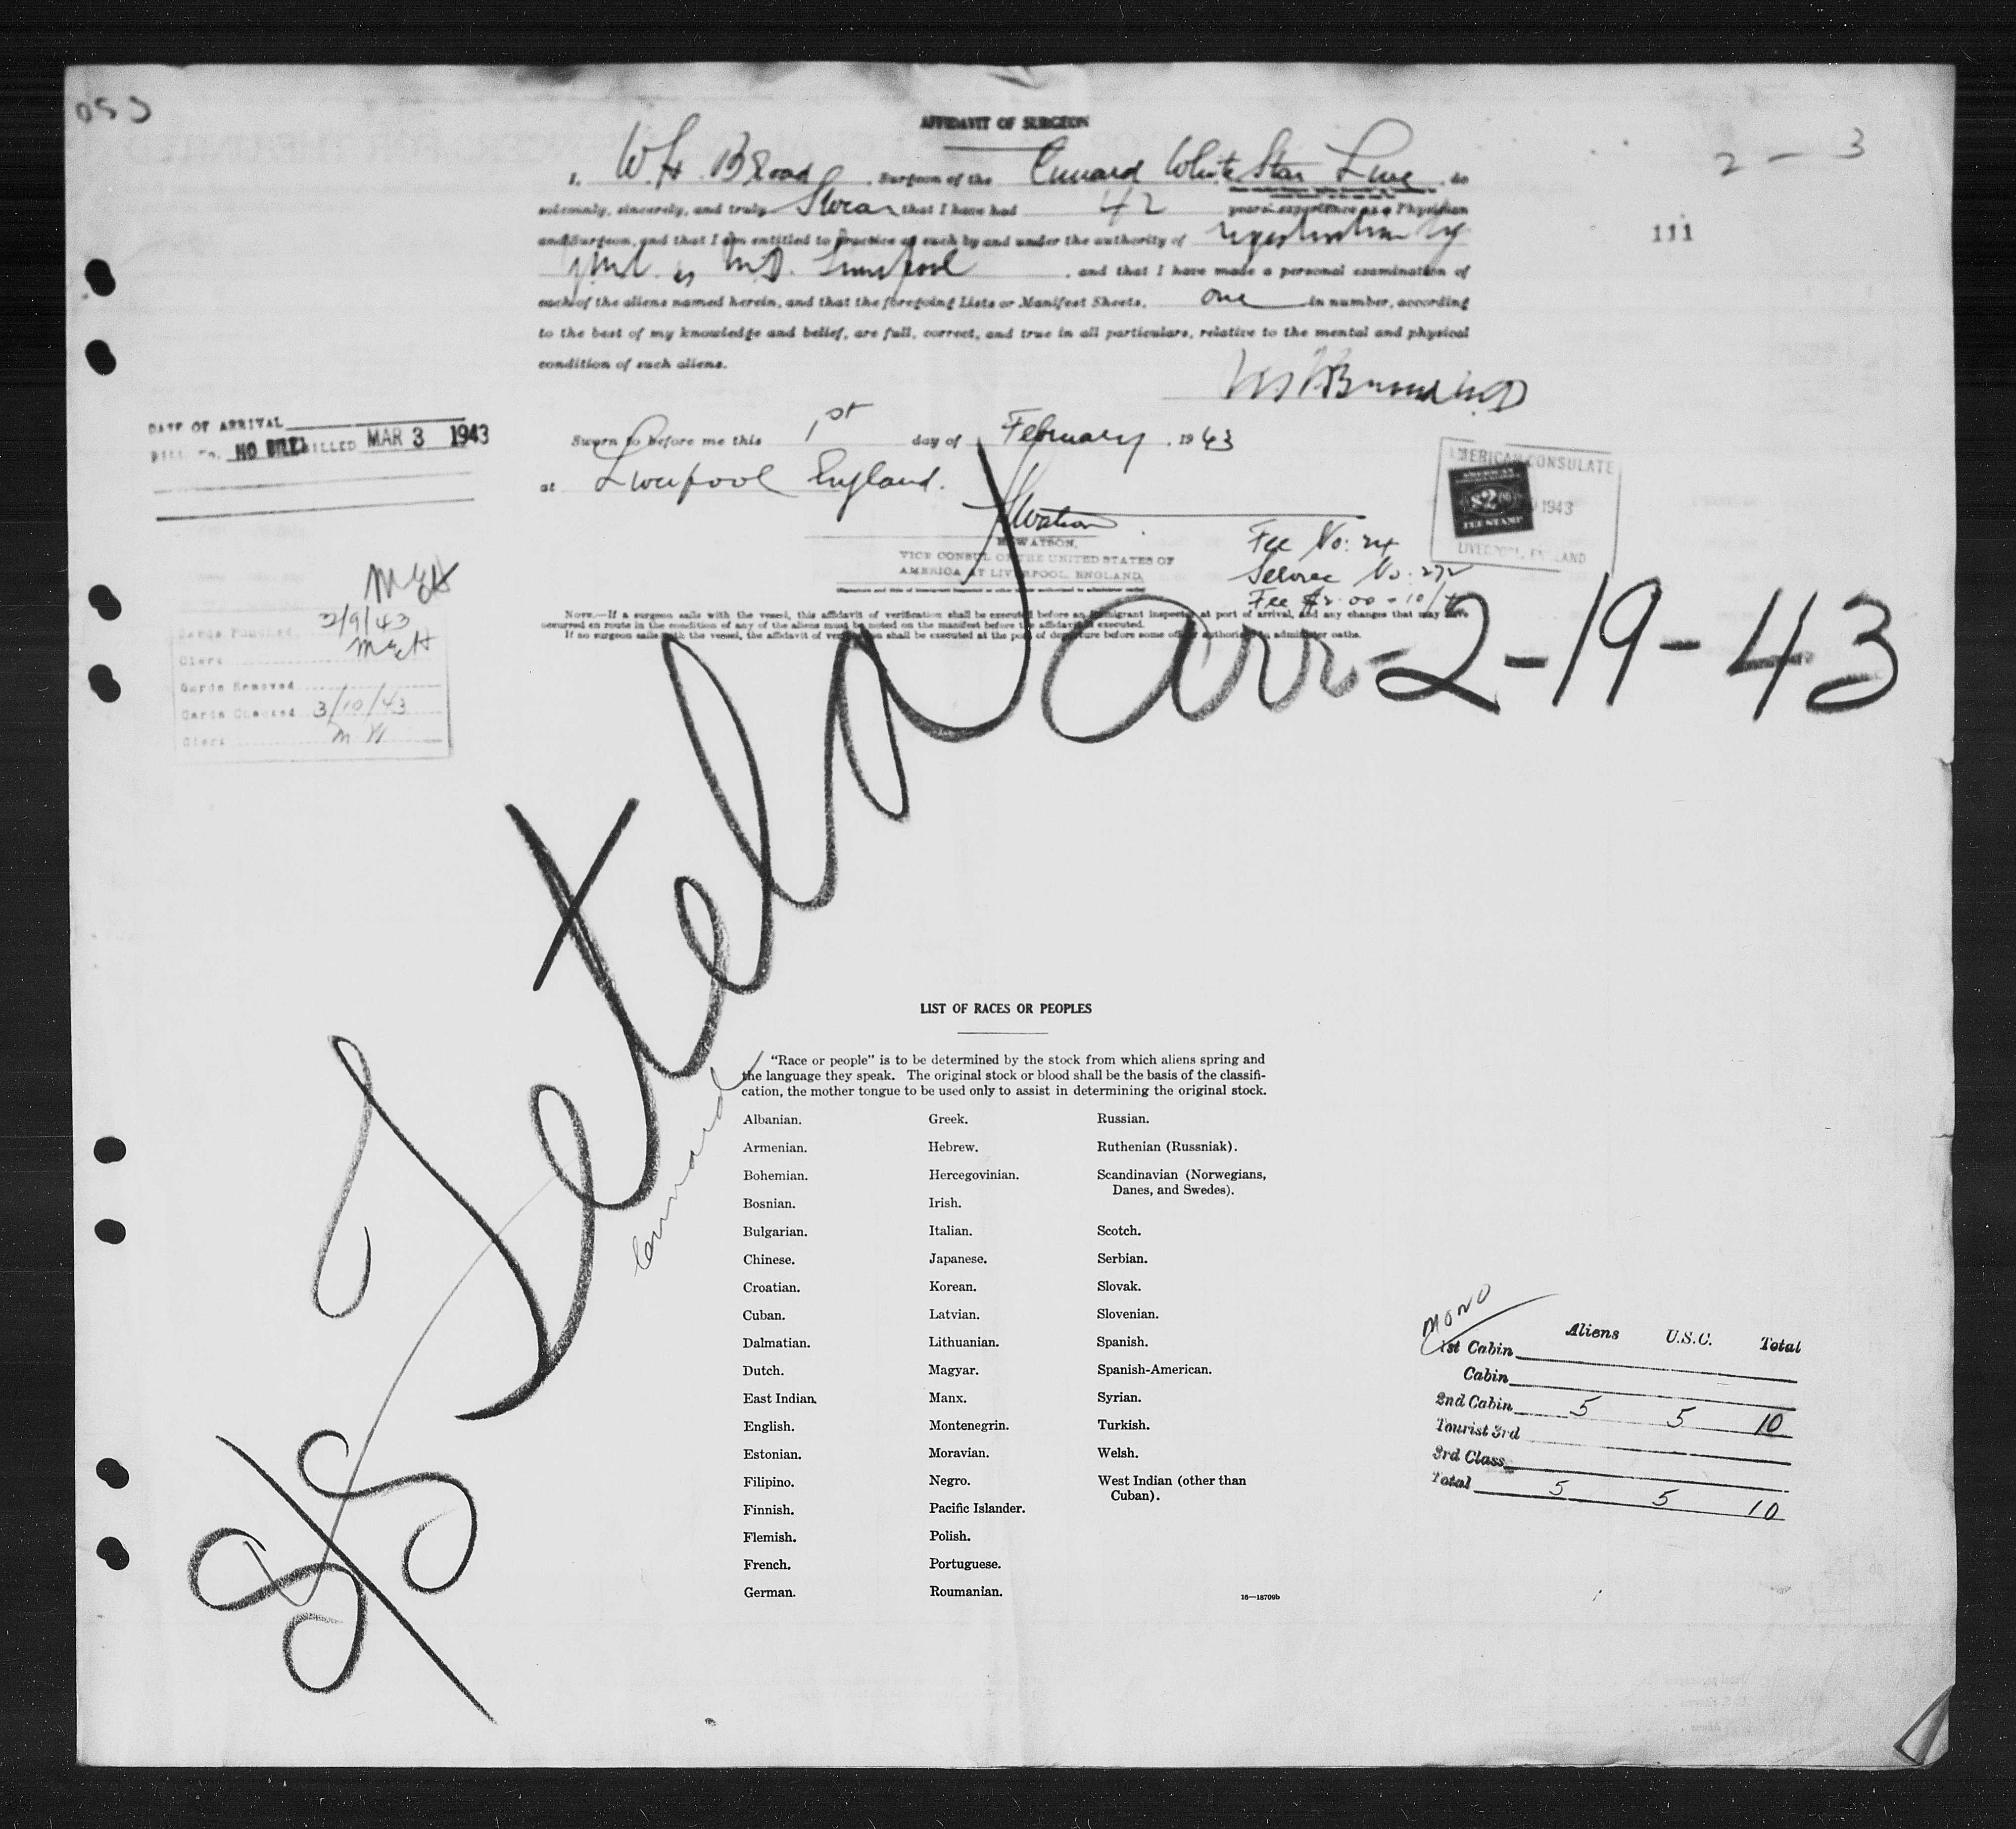 053
AFFIDAVIT OF SURGEON
2 - 3
I, W. H. Broad, Surgeon of the Cunard White Star Line, do
solemnly, sincerely, and truly Swear that I have had 42 years' experience as a Physician
and Surgeon, and that I am entitled to practice as such by and under the authority of registration by
111
M.D. Liverpool, and that I have made a personal examination of
each of the aliens named herein, and that the foregoing Lists or Manifest Sheets, one in number, according
to the best of my knowledge and belief, are full, correct, and true in all particulars, relative to the mental and physical
condition of such aliens.
DATE OF ARRIVAL
BILL No. NO BILL BILLED MAR 3 1943
Sworn to before me this 1st day of February, 1943
at Liverpool England.
AMERICAN CONSULATE
$2.00
FEE STAMP
1943
LIVERPOOL, ENGLAND
Watson
WATSON,
VICE CONSUL OF THE UNITED STATES OF
AMERICA AT LIVERPOOL, ENGLAND.
Fee No: 24
Service No: 272
Fee $2.00
NOTE.—If a surgeon sails with the vessel, this affidavit of verification shall be executed before an immigrant inspector at port of arrival, and any changes that may have
occurred en route in the condition of any of the aliens must be noted on the manifest before the affidavit is executed.
If no surgeon sails with the vessel, the affidavit of verification shall be executed at the port of departure before some officer authorized to administer oaths.
MEH
Cards Punched 3/9/43
Clerk MEH
Cards Removed
Cards Checked 3/10/43
Clerk MH
S/S Tetela
Arr-2-19-43
Cunard
LIST OF RACES OR PEOPLES
"Race or people" is to be determined by the stock from which aliens spring and
the language they speak. The original stock or blood shall be the basis of the classifi-
cation, the mother tongue to be used only to assist in determining the original stock.
Albanian. Greek. Russian.
Armenian. Hebrew. Ruthenian (Russniak).
Bohemian. Hercegovinian. Scandinavian (Norwegians,
Danes, and Swedes).
Bosnian. Irish.
Bulgarian. Italian. Scotch.
Chinese. Japanese. Serbian.
Croatian. Korean. Slovak.
Cuban. Latvian. Slovenian.
Dalmatian. Lithuanian. Spanish.
Dutch. Magyar. Spanish-American.
East Indian. Manx. Syrian.
English. Montenegrin. Turkish.
Estonian. Moravian. Welsh.
Filipino. Negro. West Indian (other than
Cuban).
Finnish. Pacific Islander.
Flemish. Polish.
French. Portuguese.
German. Roumanian.
16—18709b
MONO
Aliens U.S.C. Total
1st Cabin
Cabin
2nd Cabin 5 5 10
Tourist 3rd
3rd Class
Total 5 5 10